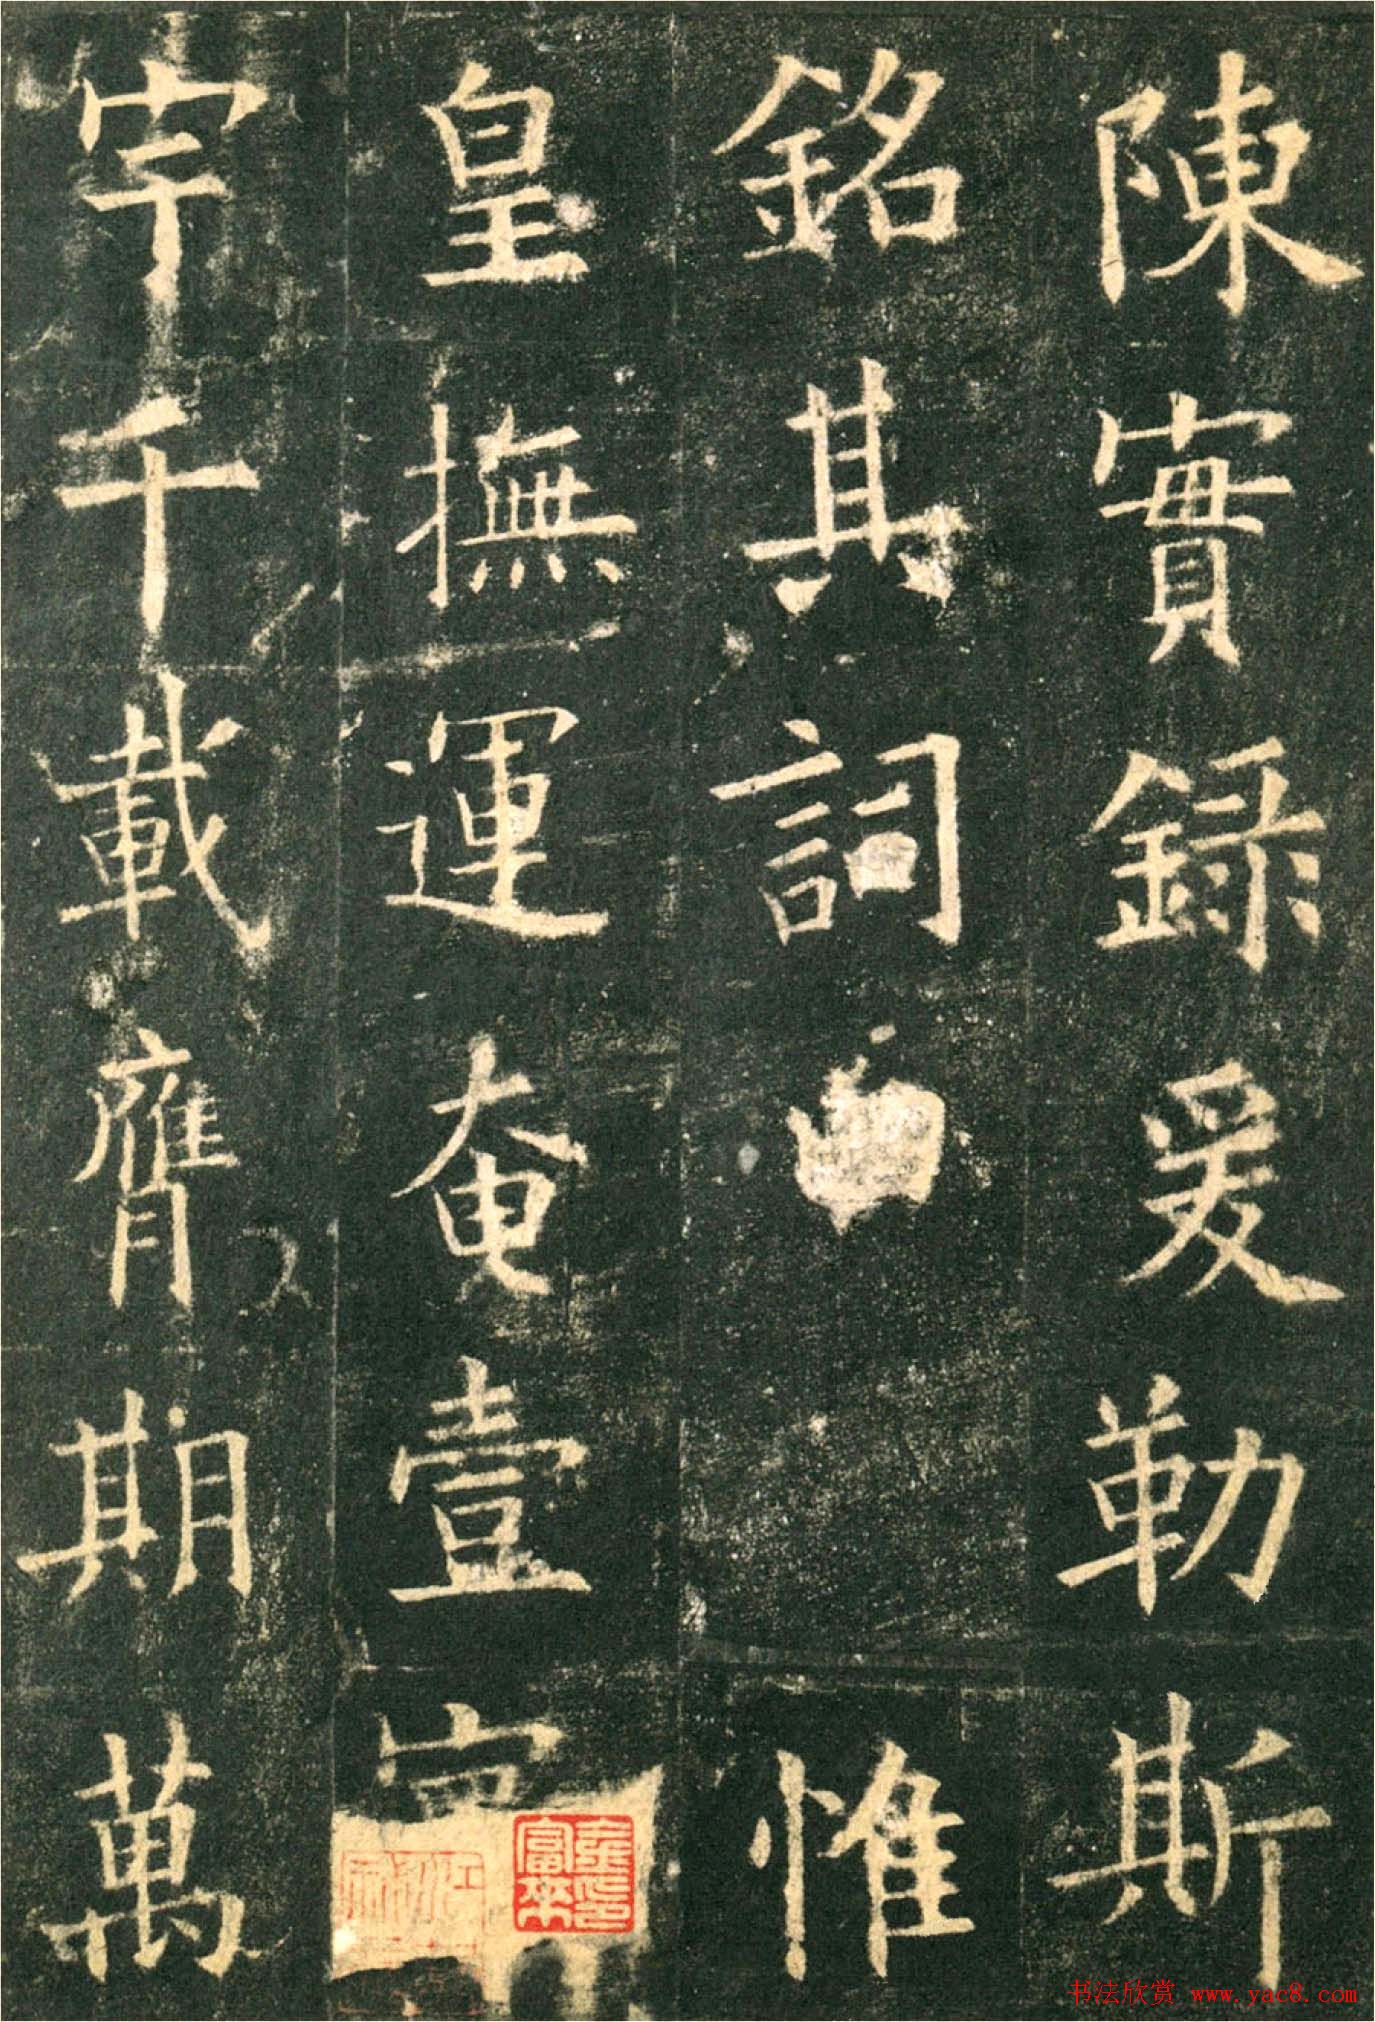 陳實錄爰勒斯
銘其詞曰惟
皇撫運奄壹
宇千載膺期萬
书法欣赏 www.yac8.com